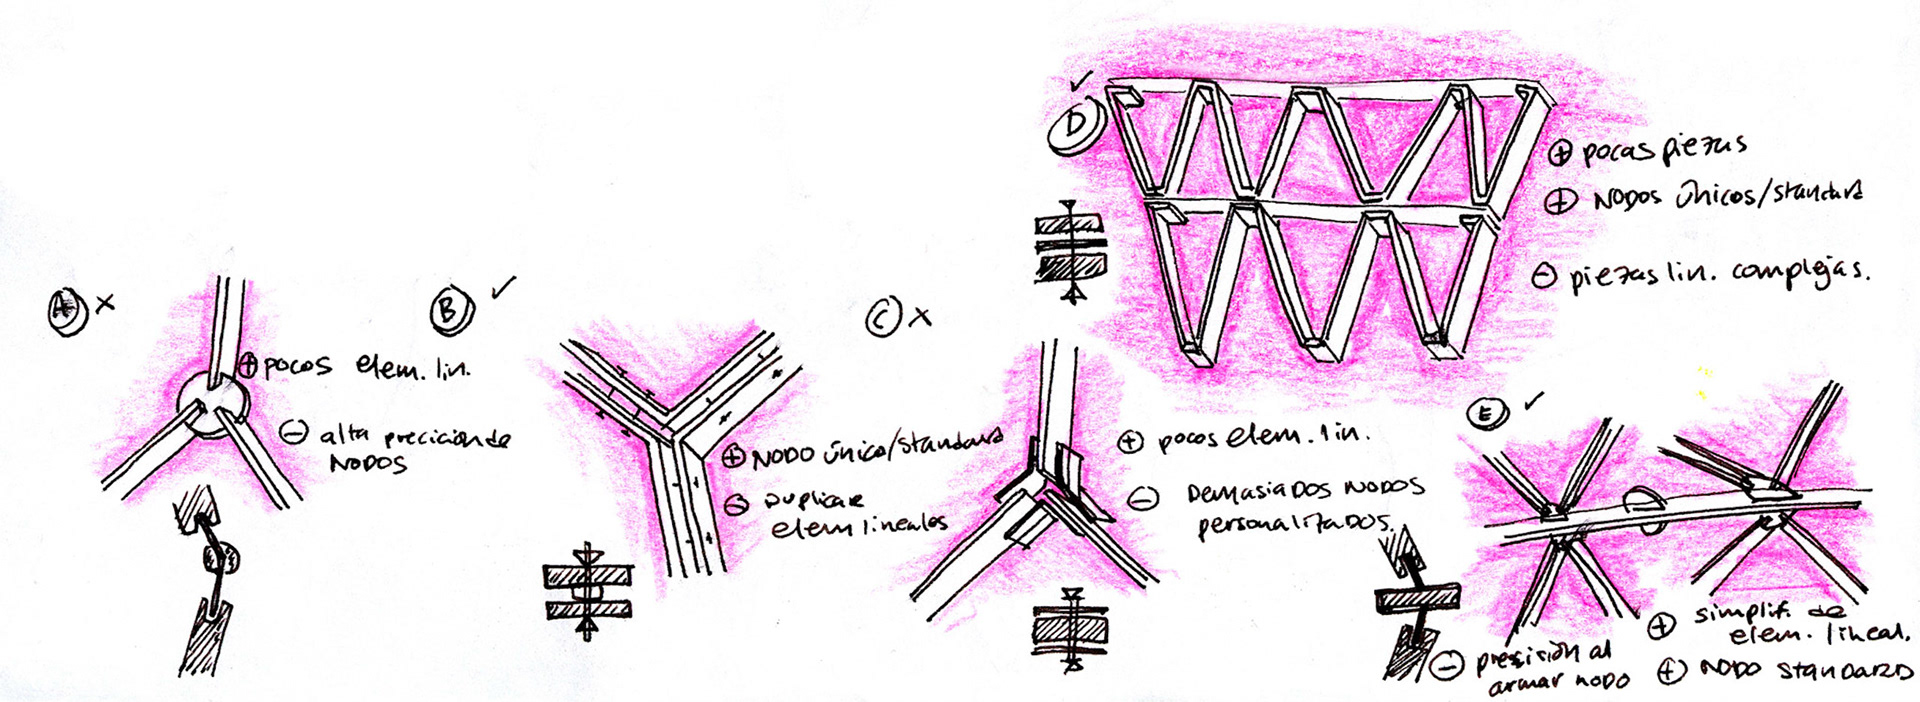 A ×
⊕ pocos elem. lin.
⊖ alta precición de
NODOS
B ✓
⊕ NODO único/standard
⊖ Duplicar
elem lineales
C ×
⊕ pocos elem. lin.
⊖ Demasiados nodos
personalizados.
✓
D
⊕ pocas piezas
⊕ NODOS únicos/standard
⊖ piezas lin. complejas.
E ✓
⊕ simplif. de
elem. lineal.
⊖ precisión al
armar nodo
⊕ NODO STANDARD